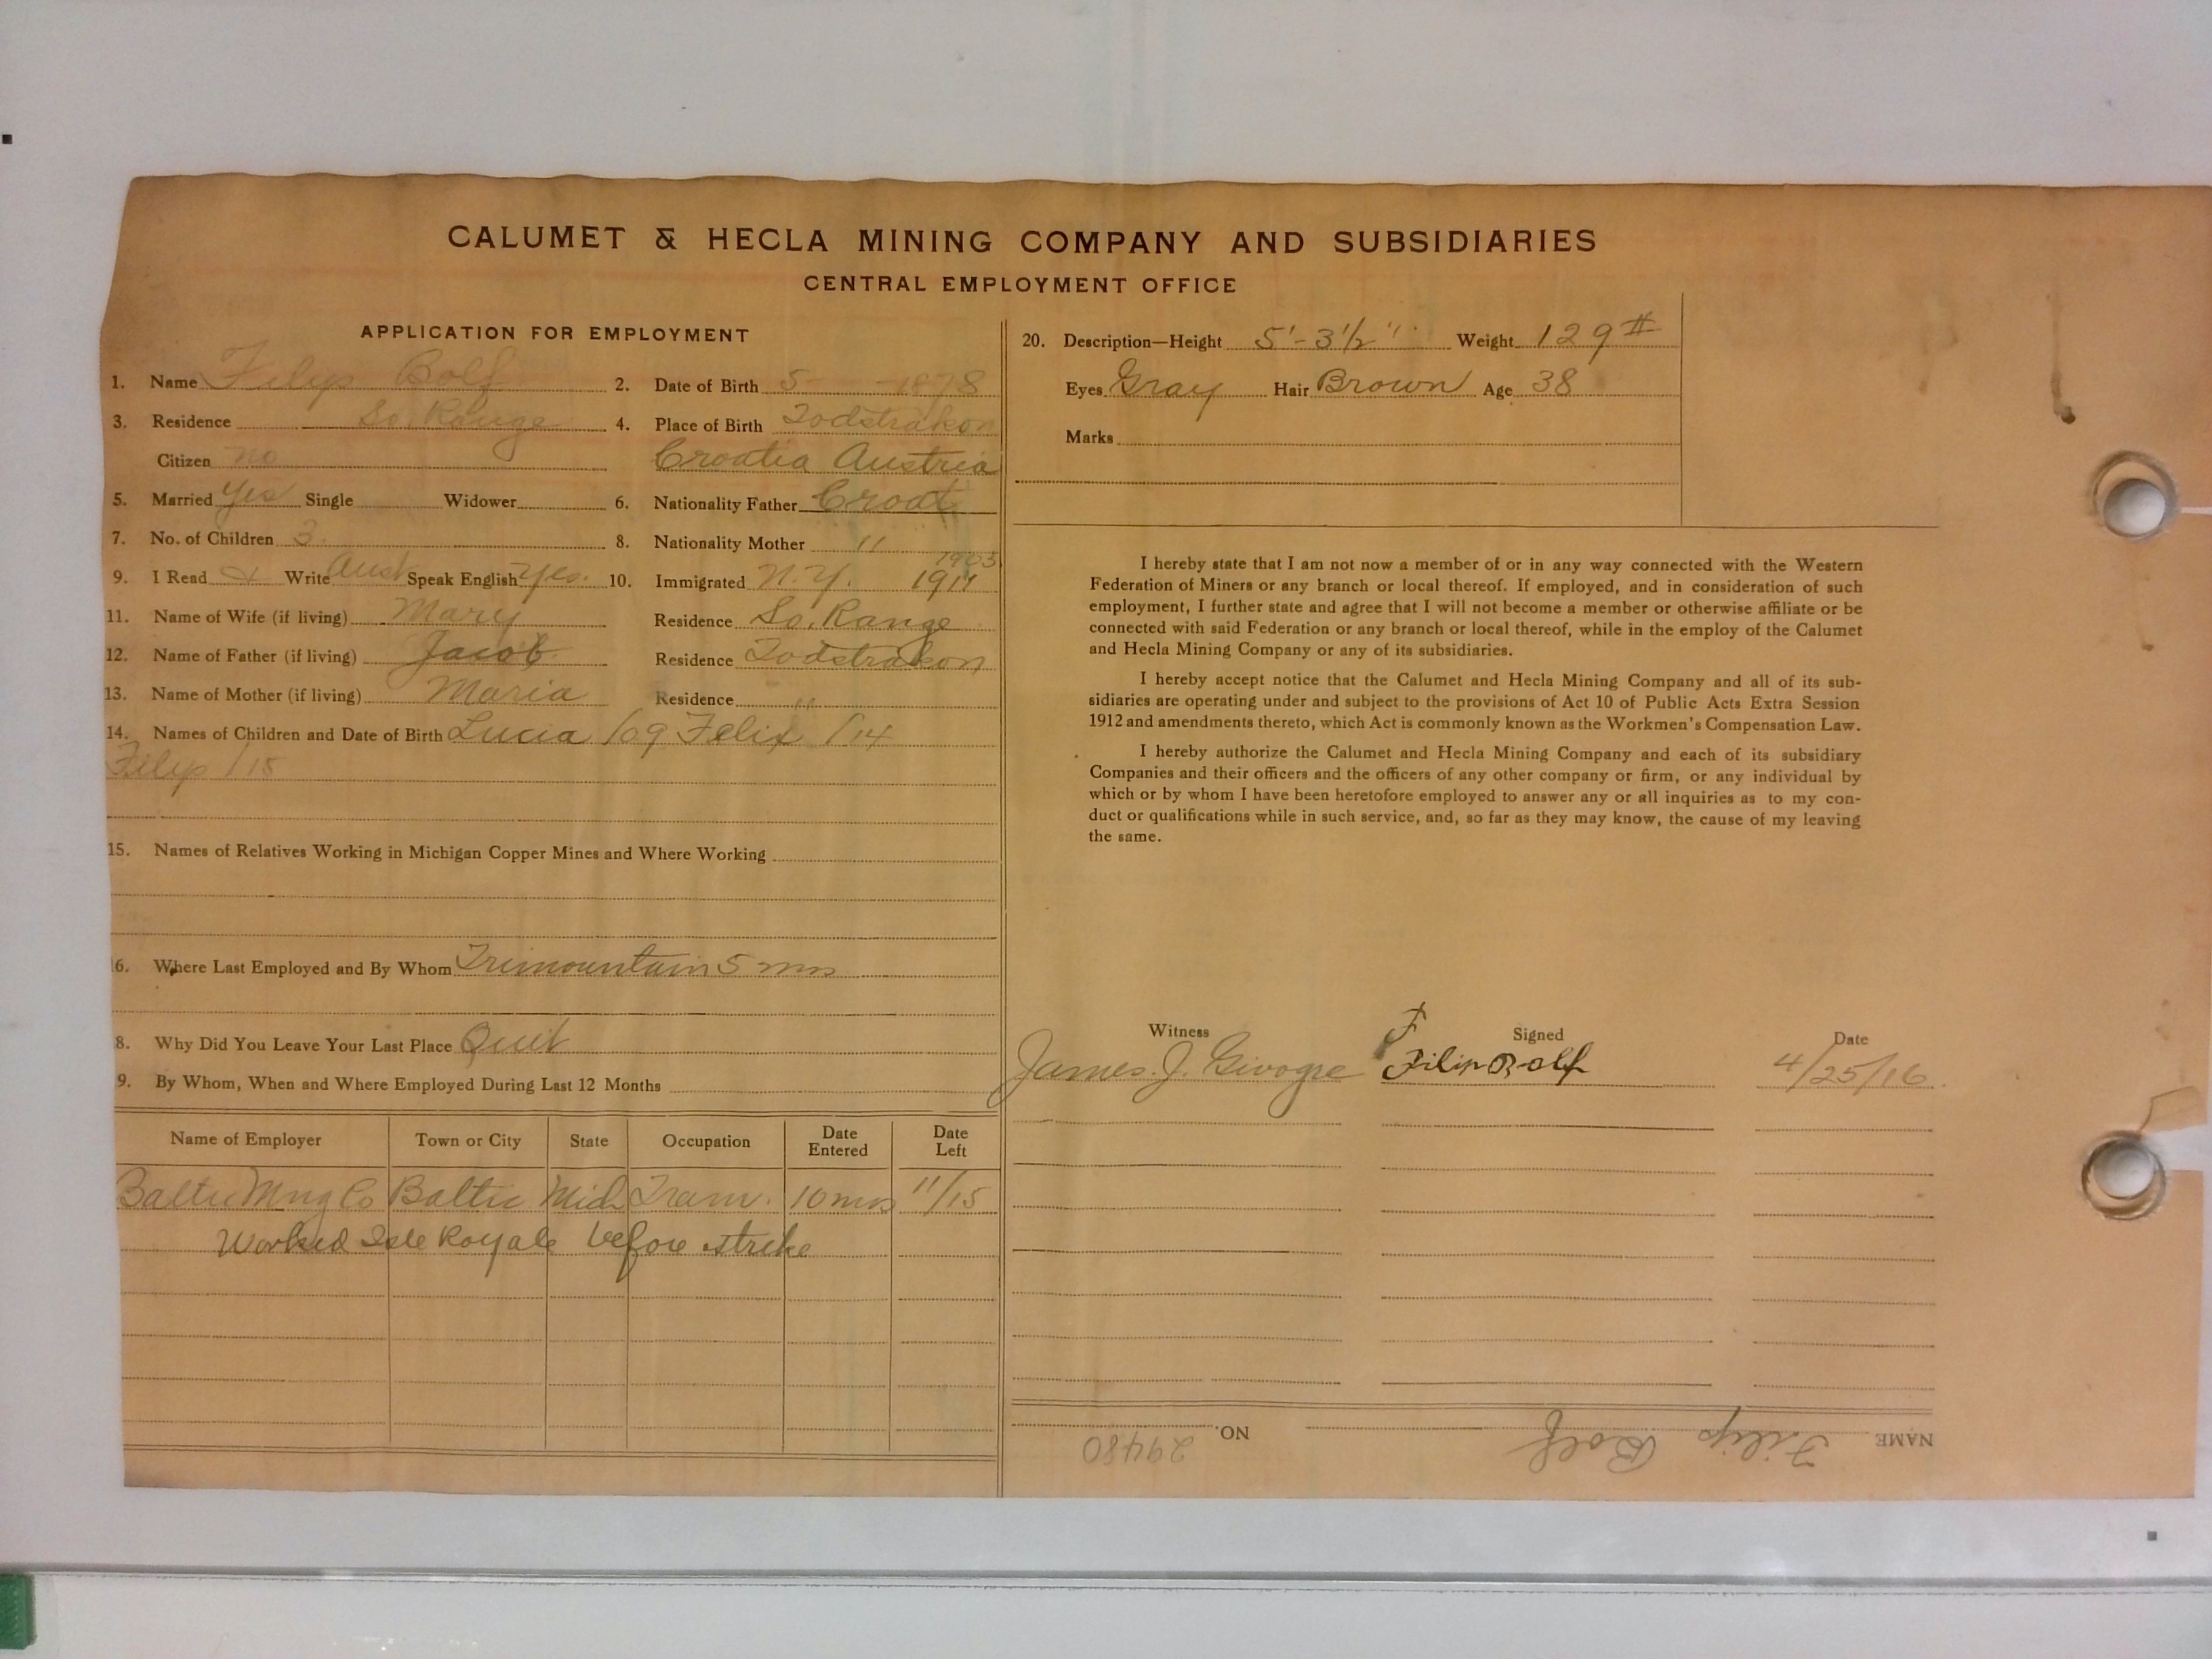 CALUMET & HECLA MINING COMPANY AND SUBSIDIARIES
CENTRAL EMPLOYMENT OFFICE
APPLICATION FOR EMPLOYMENT
1. Name Filip Bolf 2. Date of Birth 5 - - 1878
3. Residence So. Range 4. Place of Birth Podstrakon
Citizen no Croatia Austria
5. Married yes Single Widower 6. Nationality Father Croat
7. No. of Children 3. 8. Nationality Mother "
9. I Read & Write Aust Speak English yes. 10. Immigrated N.Y. 1903
11. Name of Wife (if living) Mary Residence So. Range
12. Name of Father (if living) Jacob Residence Podstrakon
13. Name of Mother (if living) Maria Residence "
14. Names of Children and Date of Birth Lucia /09 Felix /14
Filip /15
15. Names of Relatives Working in Michigan Copper Mines and Where Working
16. Where Last Employed and By Whom Trimountain 5 mos
8. Why Did You Leave Your Last Place Quit
9. By Whom, When and Where Employed During Last 12 Months
Name of Employer Town or City State Occupation Date Entered Date Left
Baltic Mng Co Baltic Mich Tram. 10 mos 11/15
Worked Isle Royale before strike
20. Description—Height 5'-3 1/2" Weight 129 #
Eyes Gray Hair Brown Age 38
Marks
I hereby state that I am not now a member of or in any way connected with the Western
Federation of Miners or any branch or local thereof. If employed, and in consideration of such
employment, I further state and agree that I will not become a member or otherwise affiliate or be
connected with said Federation or any branch or local thereof, while in the employ of the Calumet
and Hecla Mining Company or any of its subsidiaries.
I hereby accept notice that the Calumet and Hecla Mining Company and all of its sub-
sidiaries are operating under and subject to the provisions of Act 10 of Public Acts Extra Session
1912 and amendments thereto, which Act is commonly known as the Workmen's Compensation Law.
I hereby authorize the Calumet and Hecla Mining Company and each of its subsidiary
Companies and their officers and the officers of any other company or firm, or any individual by
which or by whom I have been heretofore employed to answer any or all inquiries as to my con-
duct or qualifications while in such service, and, so far as they may know, the cause of my leaving
the same.
Witness Signed Date
James. J. F Filip Bolf 4/25/16.
NAME Filip Bolf NO. 29480